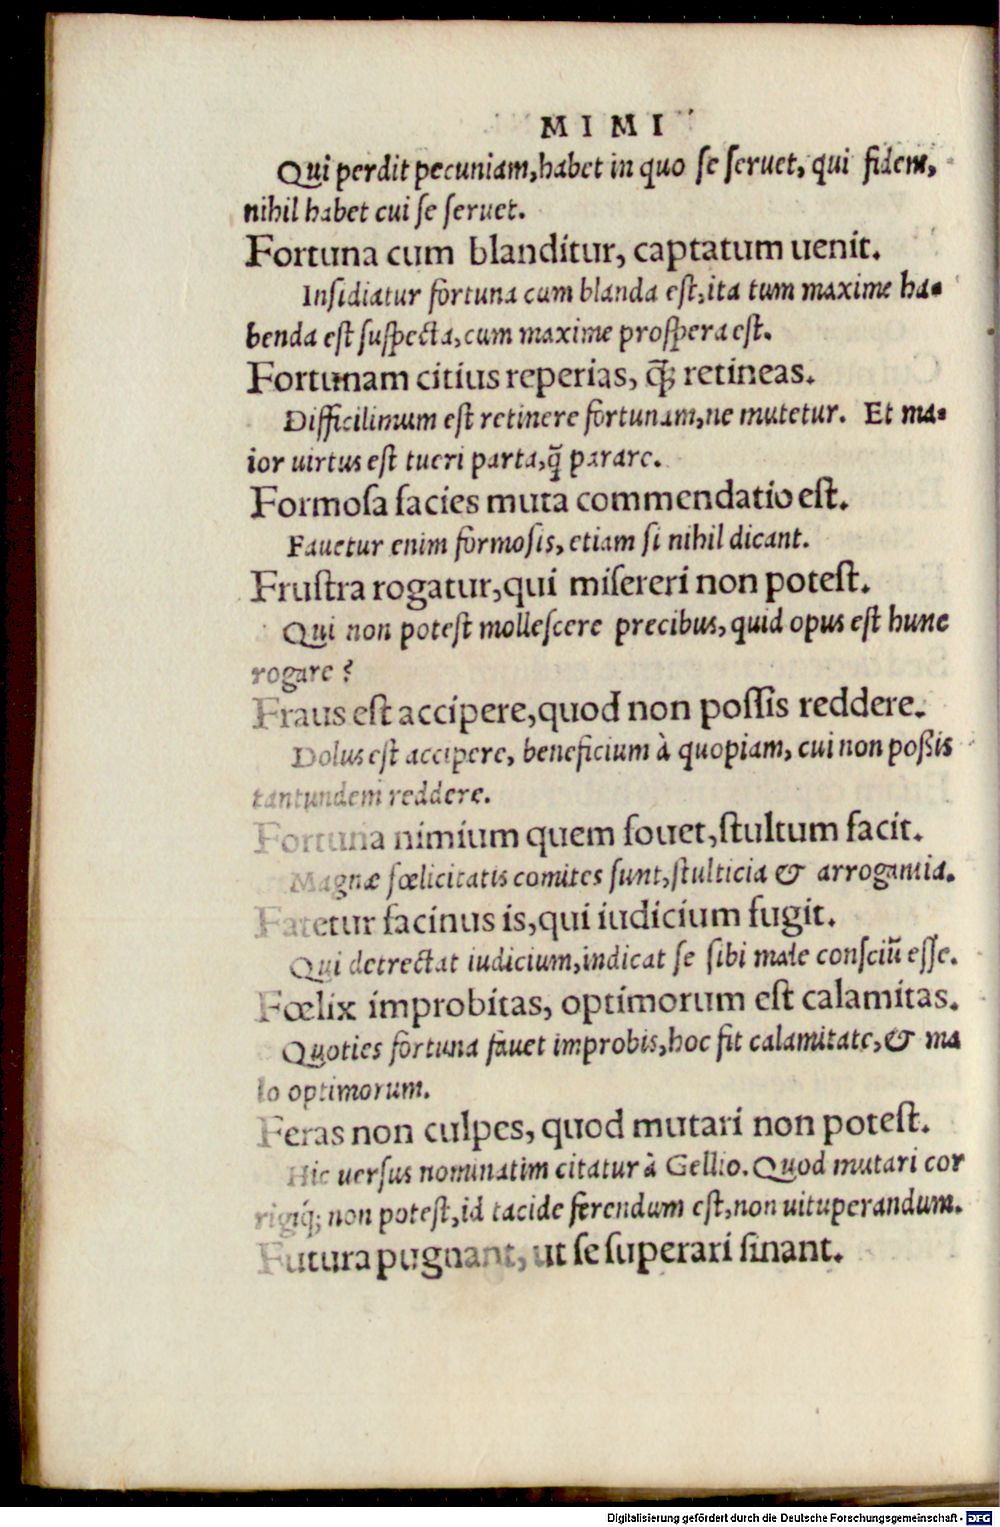 MIMI
Qui perdit pecuniam, habet in quo se seruet, qui fidem,
nihil habet cui se seruet.
Fortuna cum blanditur, captatum uenit.
Insidiatur fortuna cum blanda est, ita tum maxime ha-
benda est suspecta, cum maxime prospera est.
Fortunam citius reperias, q̃ꝫ retineas.
Difficilimum est retinere fortunam, ne mutetur. Et ma-
ior uirtus est tueri parta, q̃ parare.
Formosa facies muta commendatio est.
Fauetur enim formosis, etiam si nihil dicant.
Frustra rogatur, qui misereri non potest.
Qui non potest mollescere precibus, quid opus est hunc
rogare?
Fraus est accipere, quod non possis reddere.
Dolus est accipere, beneficium à quopiam, cui non poßis
tantundem reddere.
Fortuna nimium quem fouet, stultum facit.
Magnæ fœlicitatis comites sunt, stulticia & arrogantia.
Fatetur facinus is, qui iudicium fugit.
Qui detrectat iudicium, indicat se sibi male consciũ esse.
Fœlix improbitas, optimorum est calamitas.
Quoties fortuna fauet improbis, hoc fit calamitate, & ma
lo optimorum.
Feras non culpes, quod mutari non potest.
Hic uersus nominatim citatur à Gellio. Quod mutari cor
rigiq́; non potest, id tacide ferendum est, non uituperandum.
Futura pugnant, ut se superari sinant.
Digitalisierung gefördert durch die Deutsche Forschungsgemeinschaft - DFG